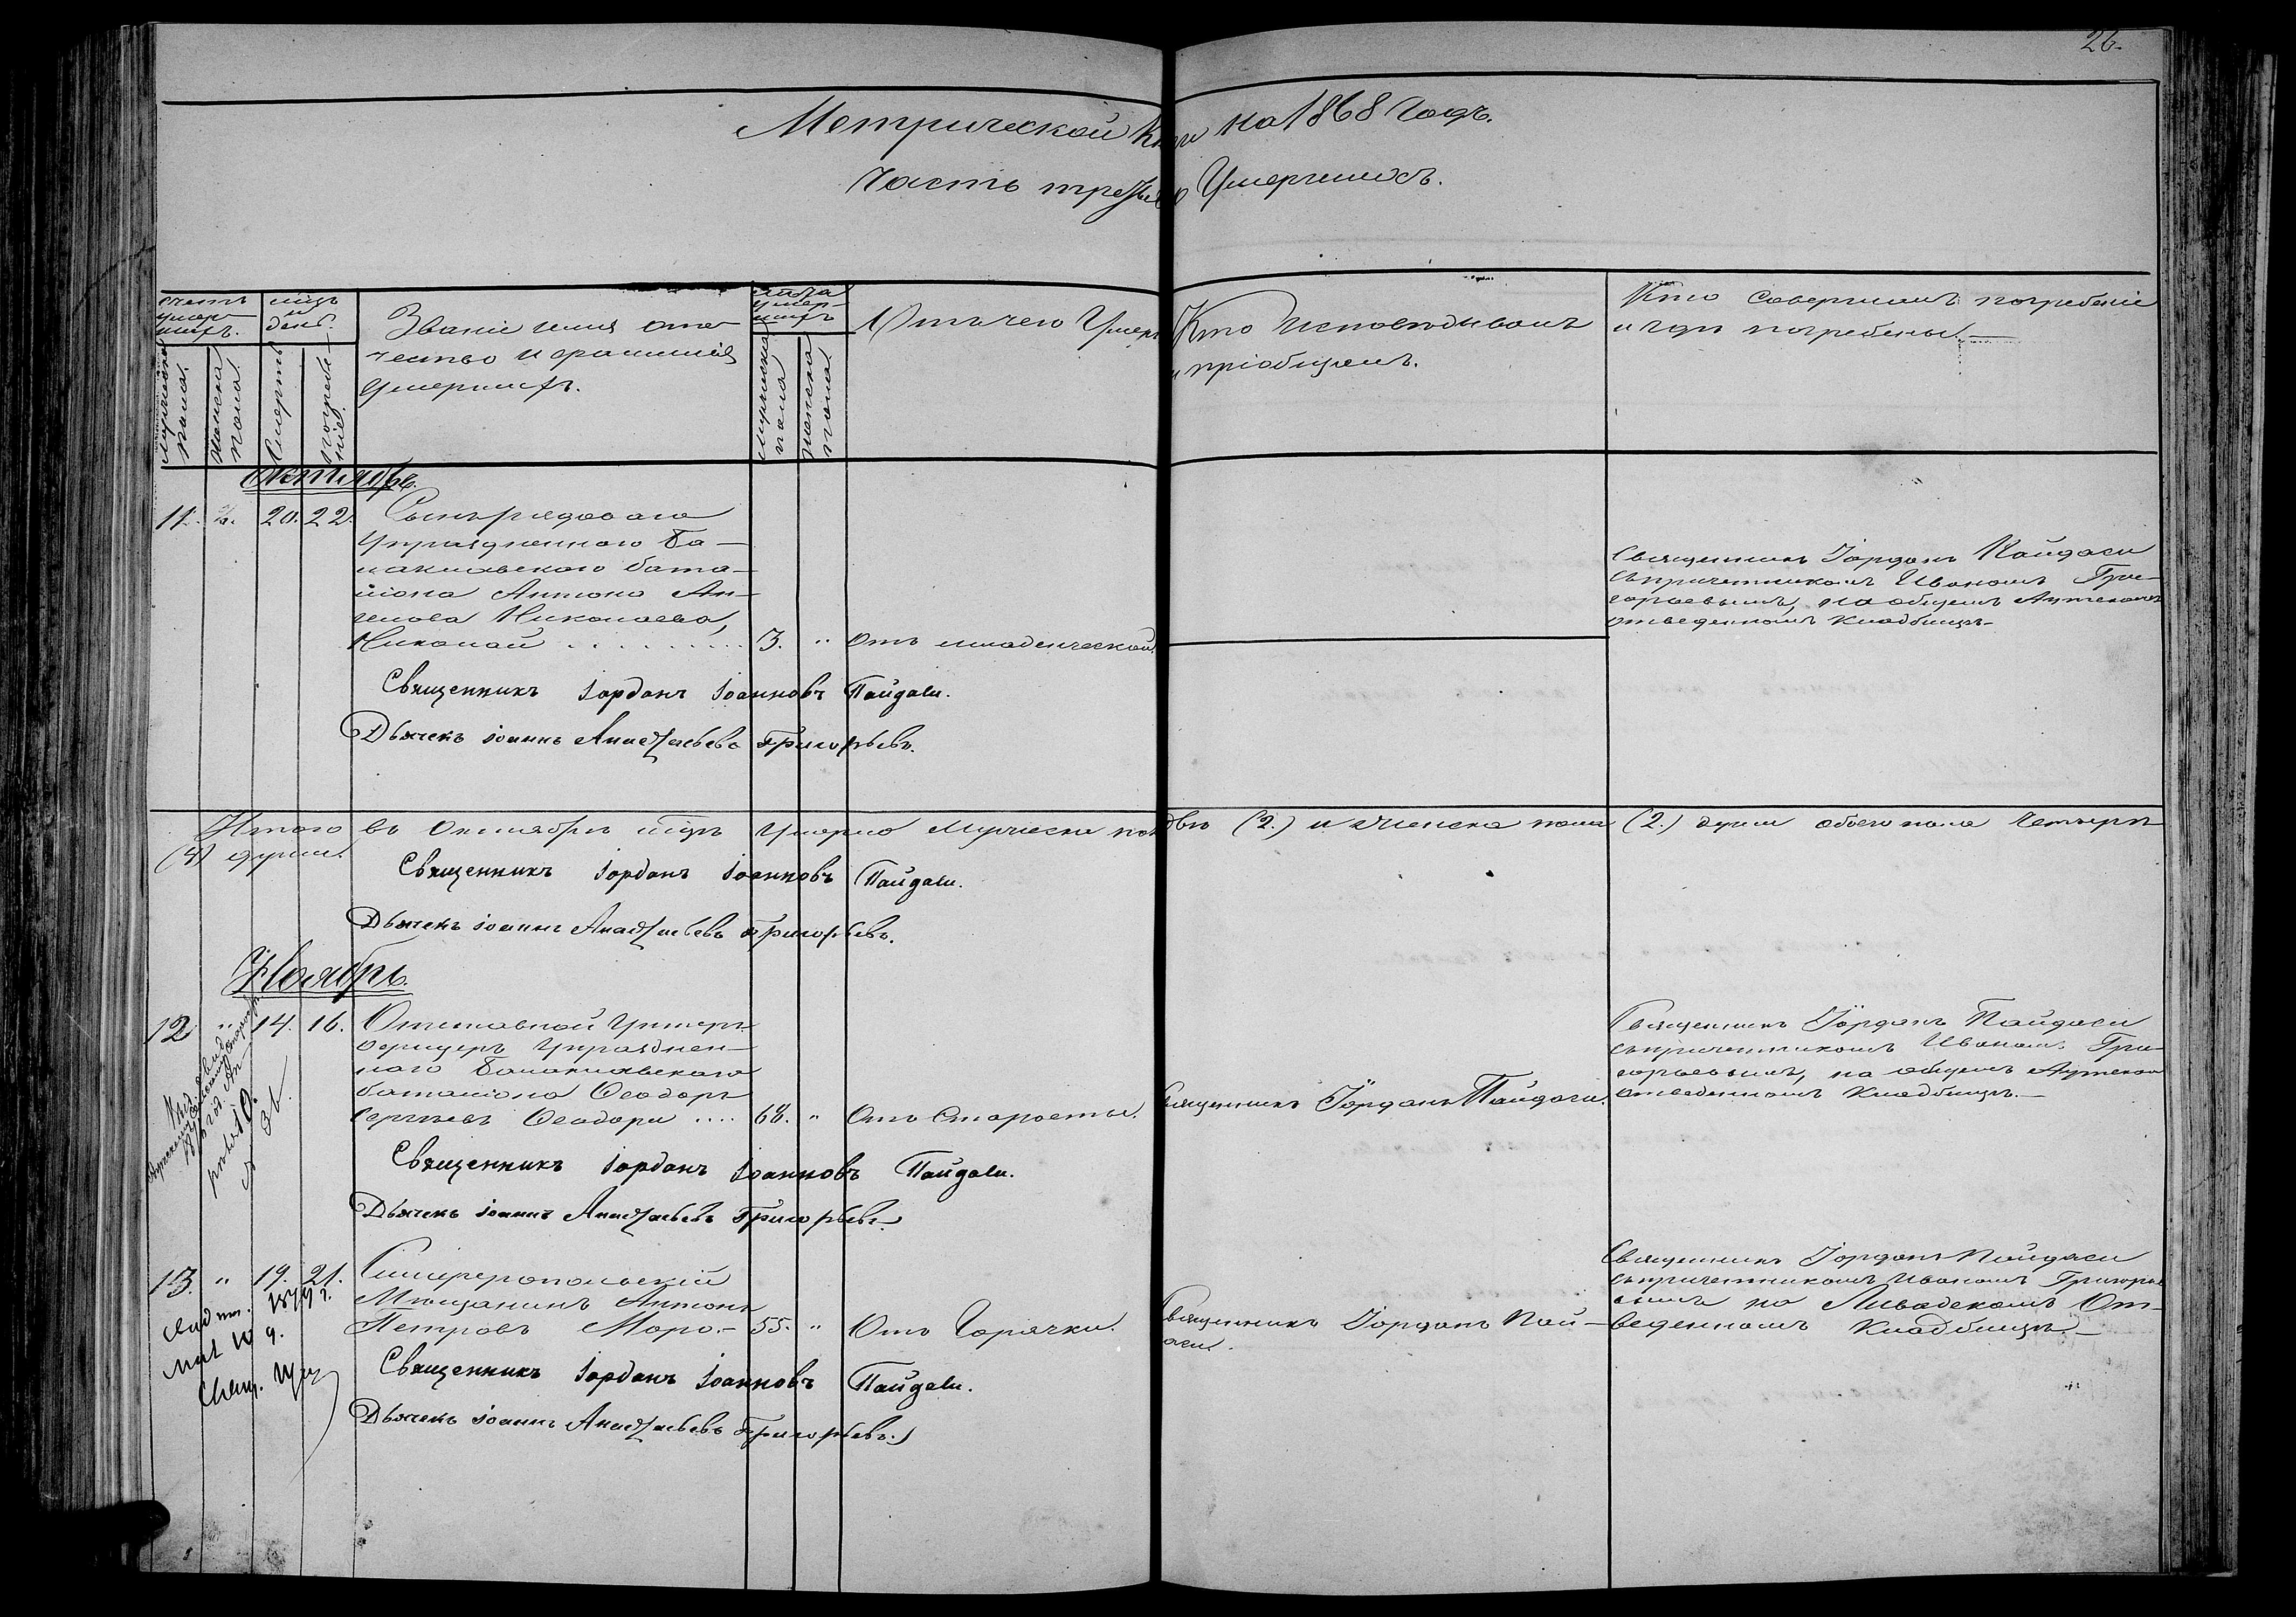 26.
Метрической Кни ги на 1868 Годъ.
Часть третья о Умершихъ.
счетъ умер-шихъ.
мѣсц и день.
Званіе имя оте-
чество и фамилія
умершихъ.
лѣта умер-шихъ
Отъ чего Умеръ
Кто Исповѣдывалъ
и пріобщалъ.
Кто Совершалъ погребеніе
и гдѣ погребены.
мужеска пола.
женска пола.
Смерть
погребе-нія.
мужеска пола
женска пола
Октябрь.
11. 20. 22.
Сынъ рядоваго
Упраздненнаго Ба-
лаклавскаго бата-
ліона Антона Ан-
гелова Николаева,
Николай . . . . . . . . . 3. " Отъ младенческой.
Священникъ Іорданъ Пайдаси
съ причетникомъ Иваномъ Гри-
горьевымъ, на общемъ Аутскомъ
отведенномъ Кладбищѣ.
Священникъ Іорданъ Іоанновъ Пайдаси.
Дьячекъ Іоаннъ Григорьевъ.
Итого въ Октябрѣ мѣсцѣ Умерло мужеска половъ (2.) и женска пола (2.) души обоего пола Четыре
(4) души.
Священникъ Іорданъ Іоанновъ Пайдаси.
Дьячекъ Іоаннъ Григорьевъ.
Ноябрь.
12 " 14. 16.
Отставной Унтеръ-
офицеръ Упразднен-
наго Балаклавскаго
баталіона Ѳеодоръ
Сергѣевъ Ѳеодори .... 68. " Отъ Старости.
Священникъ Іорданъ Пайдаси.
Священникъ Іорданъ Пайдаси
съ причетникомъ Иваномъ Гри-
горьевымъ, на общемъ Аутскомъ
отведенномъ Кладбищѣ.
Священникъ Іорданъ Іоанновъ Пайдаси.
Дьячекъ Іоаннъ Григорьевъ.
13. " 19. 21.
Симферопольскій
Мѣщанинъ Антонъ
Петровъ Моро. - 55. " Отъ Горячки.
Священникъ Іорданъ Пай-
даси.
Священникъ Іорданъ Пайдаси
съ причетникомъ Иваномъ Григорье-
вымъ на Ливадскомъ От-
веденномъ Кладбищѣ.
Священникъ Іорданъ Іоанновъ Пайдаси.
Дьячекъ Іоаннъ Григорьевъ.